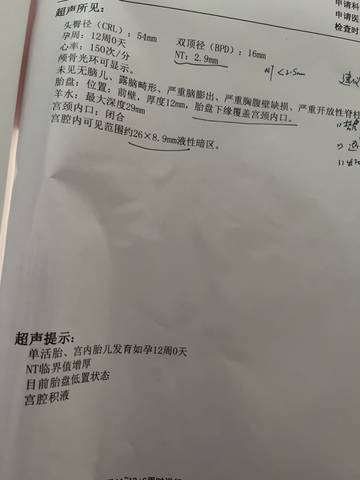 超声所见：
申请科
申请医
检查时
头臀径（CRL）：54mm 双顶径（BPD）：16mm
孕周：12周0天 NT：2.9mm
NT<2.5mm
心率：150次/分
颅骨光环可显示。
未见无脑儿、露脑畸形、严重脑膨出、严重胸腹壁缺损、严重开放性脊柱
胎盘：位置：前壁，厚度12mm，胎盘下缘覆盖宫颈内口。
羊水：最大深度29mm
宫颈内口：闭合
宫腔内可见范围约26×8.9mm液性暗区。
超声提示：
单活胎、宫内胎儿发育如孕12周0天
NT临界值增厚
目前胎盘低置状态
宫腔积液